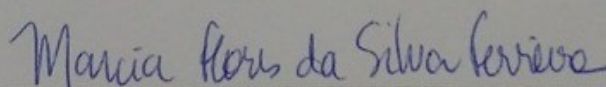 Marcia Flores da Silva Ferreira